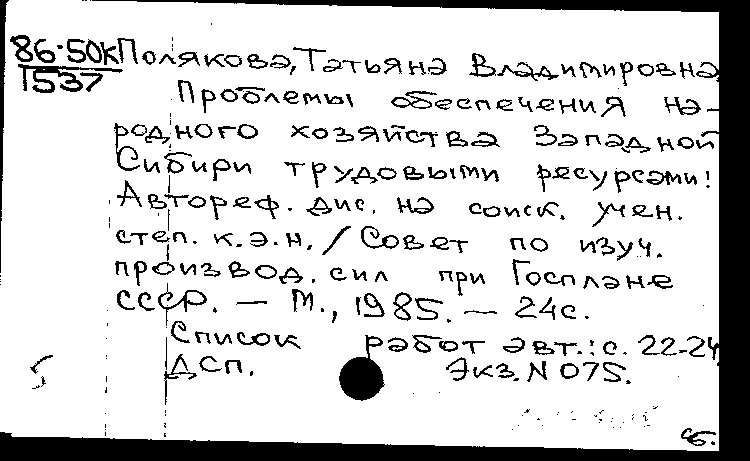 86-50к Полякова, Татьяна Владимировна
1537
Проблемы обеспечения на-
родного хозяйства Западной
Сибири трудовыми ресурсами:
Автореф. дис. на соиск. учен.
степ. к.э.н. / Совет по изуч.
производ. сил при Госплане
СССР. — М., 1985. — 24с.
Список работ авт.: с. 22-24
ДСП. Экз. N 075.
сб.